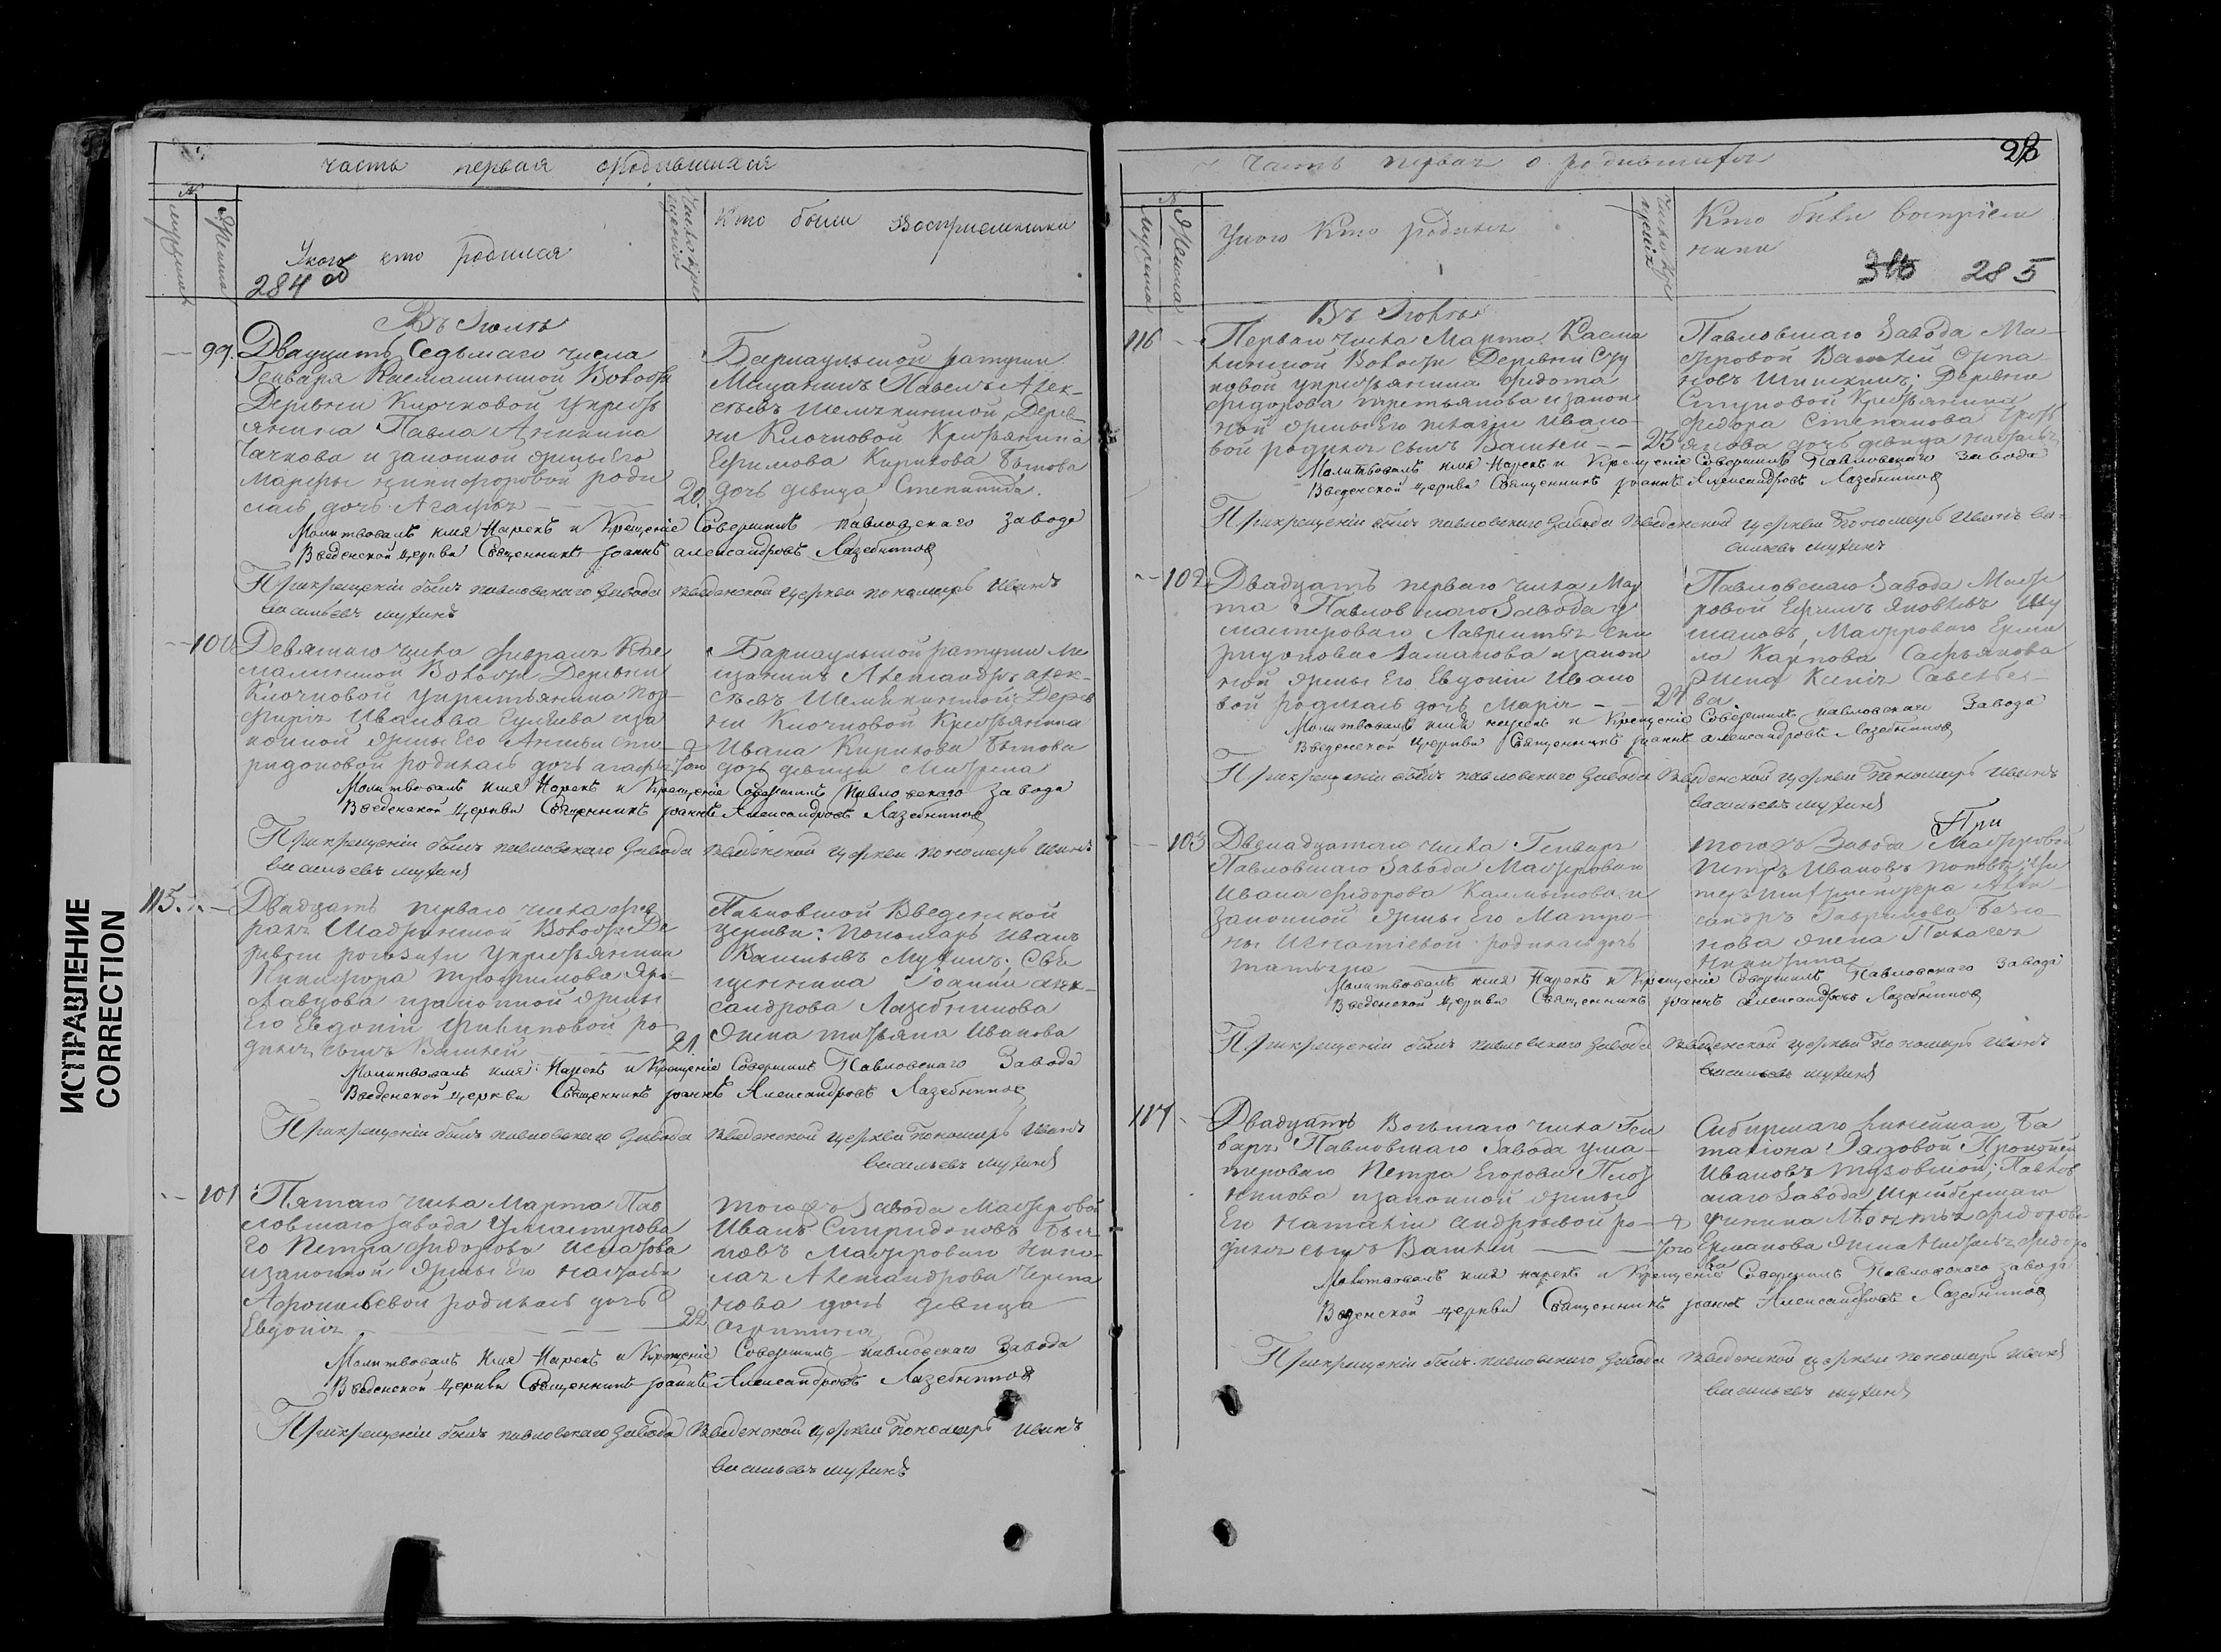 ИСПРАВЛЕНИЕ
CORRECTION
часть первая о родившихся
№
мужеска
женска
У кого кто родился
284 об
Число крещенія
Кто были Восприемники
99.
Двадцать Седьмаго числа
Генваря Касмалинской Волости
Деревни Ключковой у крестъ
янина Павла Аникина
и законной жены Его
Марфы Никифоровой роди
лась дочь Агафья
20.
Барнаульской ратуши
Мещанинъ Павелъ Алек-
сѣевъ Дерев-
ни Ключковой Крестьянина
Ефимова Кирилова Бытова
дочь девица Степанида.
Молитвовалъ имя Нарекъ и Крещеніе Совершилъ павловскаго завода
Введенской церкви Священникъ Іоаннъ александровъ Лазебников
При крещеніи былъ павловскаго завода введенской церкви пономарь Иванъ
васильевъ мухинъ
100
Девятаго числа февраля Кас
малинской Волости Деревни
Ключковой у крестьянина пор-
фирія Иванова Гуляева и за
конной жены Его Спи-
ридоновой родилась дочь агафья
Барнаульской ратуши ме
щанинъ Александръ алек-
сѣевъ Дерев
ни Ключковой Крестьянина
Ивана Кирилова Бытова
дочь девица Матрена
Молитвовалъ имя Нарекъ и Крещеніе Совершилъ Павловскаго завода
Введенской церкви Священникъ Іоаннъ Александровъ Лазебников
При крещеніи былъ павловскаго завода введенской церкви пономарь Иванъ
васильевъ мухинъ
115.
Двадцать перваго числа фев
раля Шадринской Волости Де
ревни рогозихи у крестьянина
Никифора трофимова Яро-
славцова и законной жены
Его Евдокіи Филиповой ро-
дился сынъ Василей
21.
Павловской Введенской
церкви: пономарь Иванъ
Васильевъ Мухинъ; Свя
щенника Іоанна алек-
сандрова Лазебникова
жена татьяна Иванова
Молитвовалъ имя Нарекъ и Крещеніе Совершилъ Павловскаго Завода
Введенской церкви Священникъ Іоаннъ Александровъ Лазебников
При крещеніи былъ павловскаго завода введенской церкви Пономарь Иванъ
васильевъ мухинъ
101
Пятаго числа Марта Пав
ловскаго завода у мастерова
го Петра федорова
и законной жены Его
родилась дочь
Евдокія
22
тогожъ Завода Мастеровой
Иванъ Спиридоновъ
Мастероваго Нико-
лая Александрова Черепа
нова дочь девица
Агрипина
Молитвовалъ имя Нарекъ и Крещеніе Совершилъ павловскаго Завода
Введенской церкви Священникъ Іоаннъ Александровъ Лазебников
При крещеніи былъ павловскаго завода введенской церкви Пономарь Иванъ
васильевъ мухинъ
часть первая о родившихся
28
№
мужеска
женска
У кого Кто родился
Число крещенія
Кто были воспріем
ники
285
Въ Іюлѣ
116
Перваго числа Марта Касма
линской Волости Деревни Сту
ковой у крестьянина федота
федорова третьякова и закон
ной жены Его пелагіи Ивано-
вой родился сынъ Василей
23
Павловскаго Завода Ма-
стеровой Василей Степа
новъ Шишкинъ; Деревни
Стуковой Крестьянина
Федора Степанова Треть
якова дочь девица наталья
Молитвовалъ имя Нарекъ и Крещеніе Совершилъ Павловскаго завода
Введенской церкви Священникъ Іоаннъ Александровъ Лазебников
При крещеніи былъ павловскаго завода введенской церкви Пономарь Иванъ ва-
сильевъ мухинъ
102
Двадцать перваго числа Мар
та Павловскаго Завода у
мастероваго Лаврентья Спи
ридонова и закон
ной жены Его Евдокіи Ивано
вой родилась дочь Марія
24
Павловскаго Завода Масте
ровой Ефимъ Яковлевъ Шу
маковъ, Мастероваго
Карпова Сафьянова
жена Савельева
Молитвовалъ имя нарекъ и Крещеніе Совершилъ павловскаго Завода
Введенской Церкви Священникъ Іоаннъ александровъ Лазебников
При крещеніи былъ павловскаго завода введенской церкви Пономарь Иванъ
васильевъ мухинъ
103
Двенадцатаго числа Генваря
Павловскаго Завода Мастероваго
Ивана федорова Калмыкова и
законной жены Его Матре-
ны Игнатіевой родилась дочь
татьяна
При
тогожъ Завода Мастеровой
Петръ Ивановъ поповъ; Ун
теръ Алек-
сандра Гаврилова
жена Пелагея
Никитина
Молитвовалъ имя Нарекъ и Крещеніе Совершилъ Павловскаго Завода
Введенской церкви Священникъ Іоаннъ александровъ Лазебников
При крещеніи былъ павловскаго завода введенской церкви пономарь Иванъ
васильевъ мухинъ
117
Двадцать Восьмаго числа Ген
варя Павловскаго Завода у ма-
стероваго Петра Егорова Плот
никова и законной жены
Его Наталіи Андреевой ро-
дился сынъ Василей
Сибирскаго линейнаго ба
таліона Рядовой
Ивановъ Павлов
скаго Завода
федорова
Ермакова жена федоро
ва
Молитвовалъ имя нарекъ и Крещеніе Совершилъ Павловского завода
Введенской церкви Священникъ Іоаннъ Александровъ Лазебников
При крещеніи былъ павловскаго завода введенской церкви пономарь Иванъ
васильевъ мухинъ